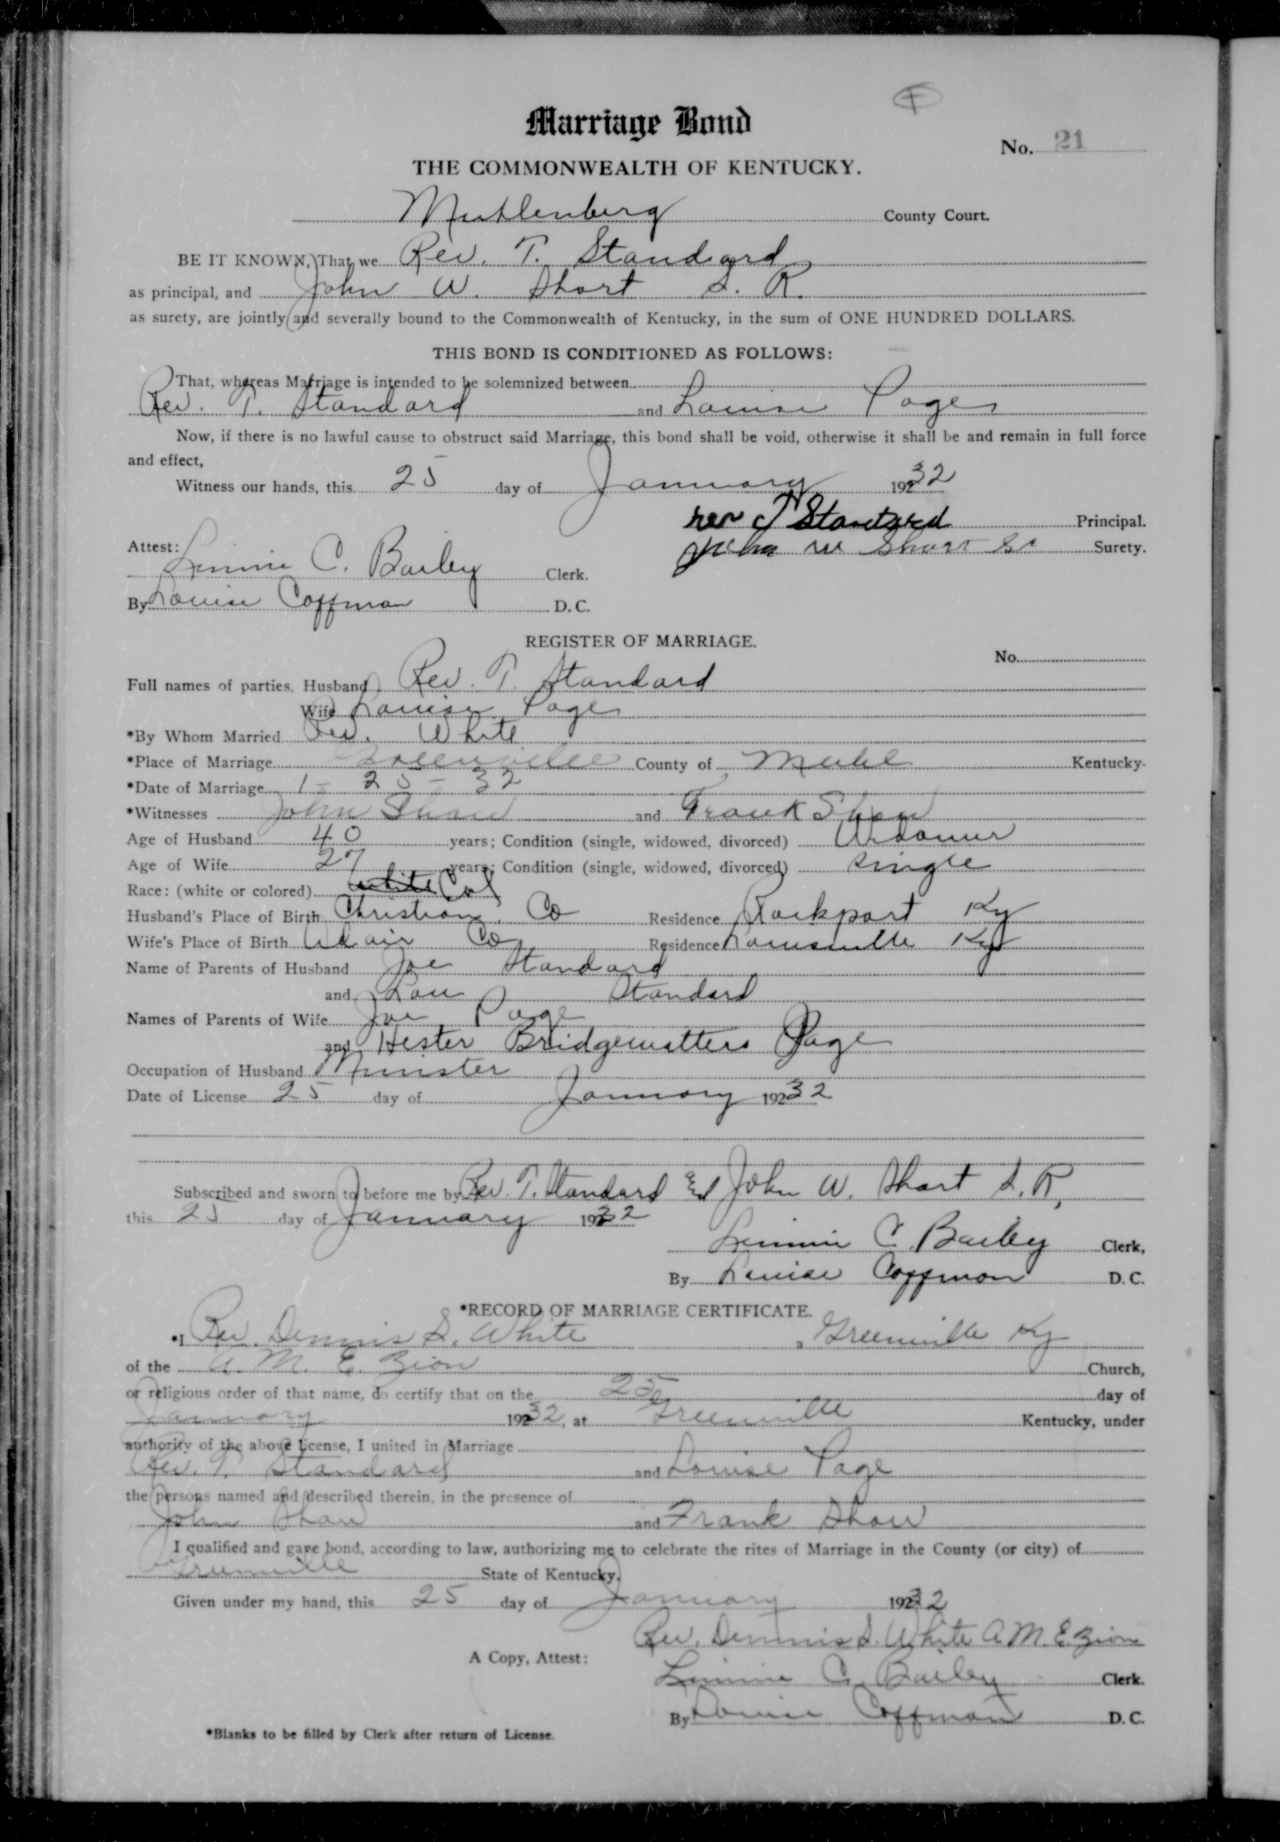 F
Marriage Bond
No. 21
THE COMMONWEALTH OF KENTUCKY.
Muhlenberg County Court.
BE IT KNOWN, That we Rev. T. Standard
as principal, and John W. Short S. R.
as surety, are jointly and severally bound to the Commonwealth of Kentucky, in the sum of ONE HUNDRED DOLLARS.
THIS BOND IS CONDITIONED AS FOLLOWS:
That, whereas Marriage is intended to be solemnized between
Rev. T. Standard and Louise Page
Now, if there is no lawful cause to obstruct said Marriage, this bond shall be void, otherwise it shall be and remain in full force
and effect,
Witness our hands, this 25 day of January 1932
rev T Standard Principal.
Attest: John W Short Sr Surety.
Linnie C. Bailey Clerk.
By Louise Coffman D. C.
REGISTER OF MARRIAGE.
No.
Full names of parties, Husband Rev. T. Standard
Wife Louise Page
*By Whom Married Rev. White
*Place of Marriage Greenville County of Muhl Kentucky.
*Date of Marriage 1 - 25 - 32
*Witnesses John Shaw and Frank Shaw
Age of Husband 40 years; Condition (single, widowed, divorced) Widower
Age of Wife 27 years; Condition (single, widowed, divorced) single
Race: (white or colored) white Col
Husband's Place of Birth Christian Co Residence Rockport Ky
Wife's Place of Birth Adair Co Residence Louisville Ky
Name of Parents of Husband Joe Standard
and Lou Standard
Names of Parents of Wife Joe Page
and Hester Bridgewatters Page
Occupation of Husband Minister
Date of License 25 day of January 1932
Subscribed and sworn to before me by Rev. T. Standard and John W. Short S. R.
this 25 day of January 1932
Linnie C. Bailey Clerk,
By Louise Coffman D. C.
*RECORD OF MARRIAGE CERTIFICATE.
*I Rev. Dennis S. White, Greenville Ky
of the A. M. E. Zion Church,
or religious order of that name, do certify that on the 25 day of
January 1932, at Greenville Kentucky, under
authority of the above license, I united in Marriage
Rev. T. Standard and Louise Page
the persons named and described therein, in the presence of
John Shaw and Frank Shaw
I qualified and gave bond, according to law, authorizing me to celebrate the rites of Marriage in the County (or city) of
Greenville State of Kentucky.
Given under my hand, this 25 day of January 1932
Rev. Dennis S. White A M. E Zion
A Copy, Attest: Linnie C. Bailey Clerk.
By Louise Coffman D. C.
*Blanks to be filled by Clerk after return of License.